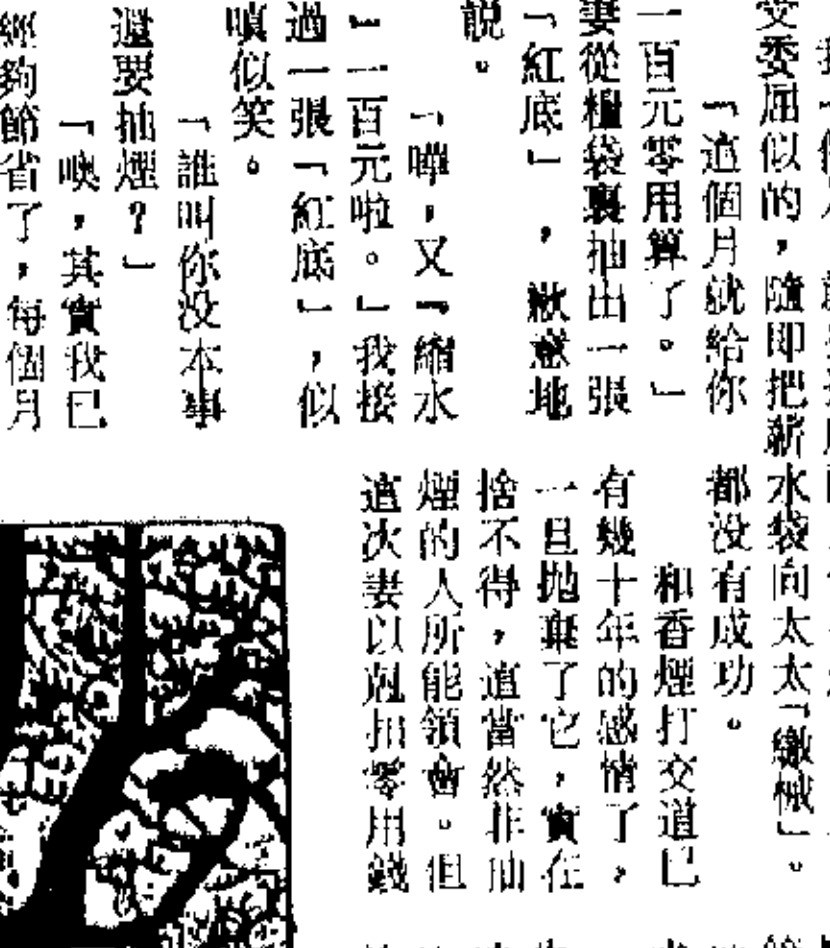 受委屈似的，隨即把薪水袋向太太「繳械」。
「這個月就給你
一百元零用算了。」
妻從糧袋裏抽出一張
「紅底」，歉意地
說。
「嘩，又「縮水
」一百元啦。」我接
過一張「紅底」，似
嗔似笑。
「誰叫你没本事
還要抽煙？」
「噢，其實我已
經夠節省了，每個月
都没有成功。
和香煙打交道已
有幾十年的感情了，
一旦拋棄了它，實在
捨不得，這當然非抽
煙的人所能領會。但
這次妻以剋扣零用錢